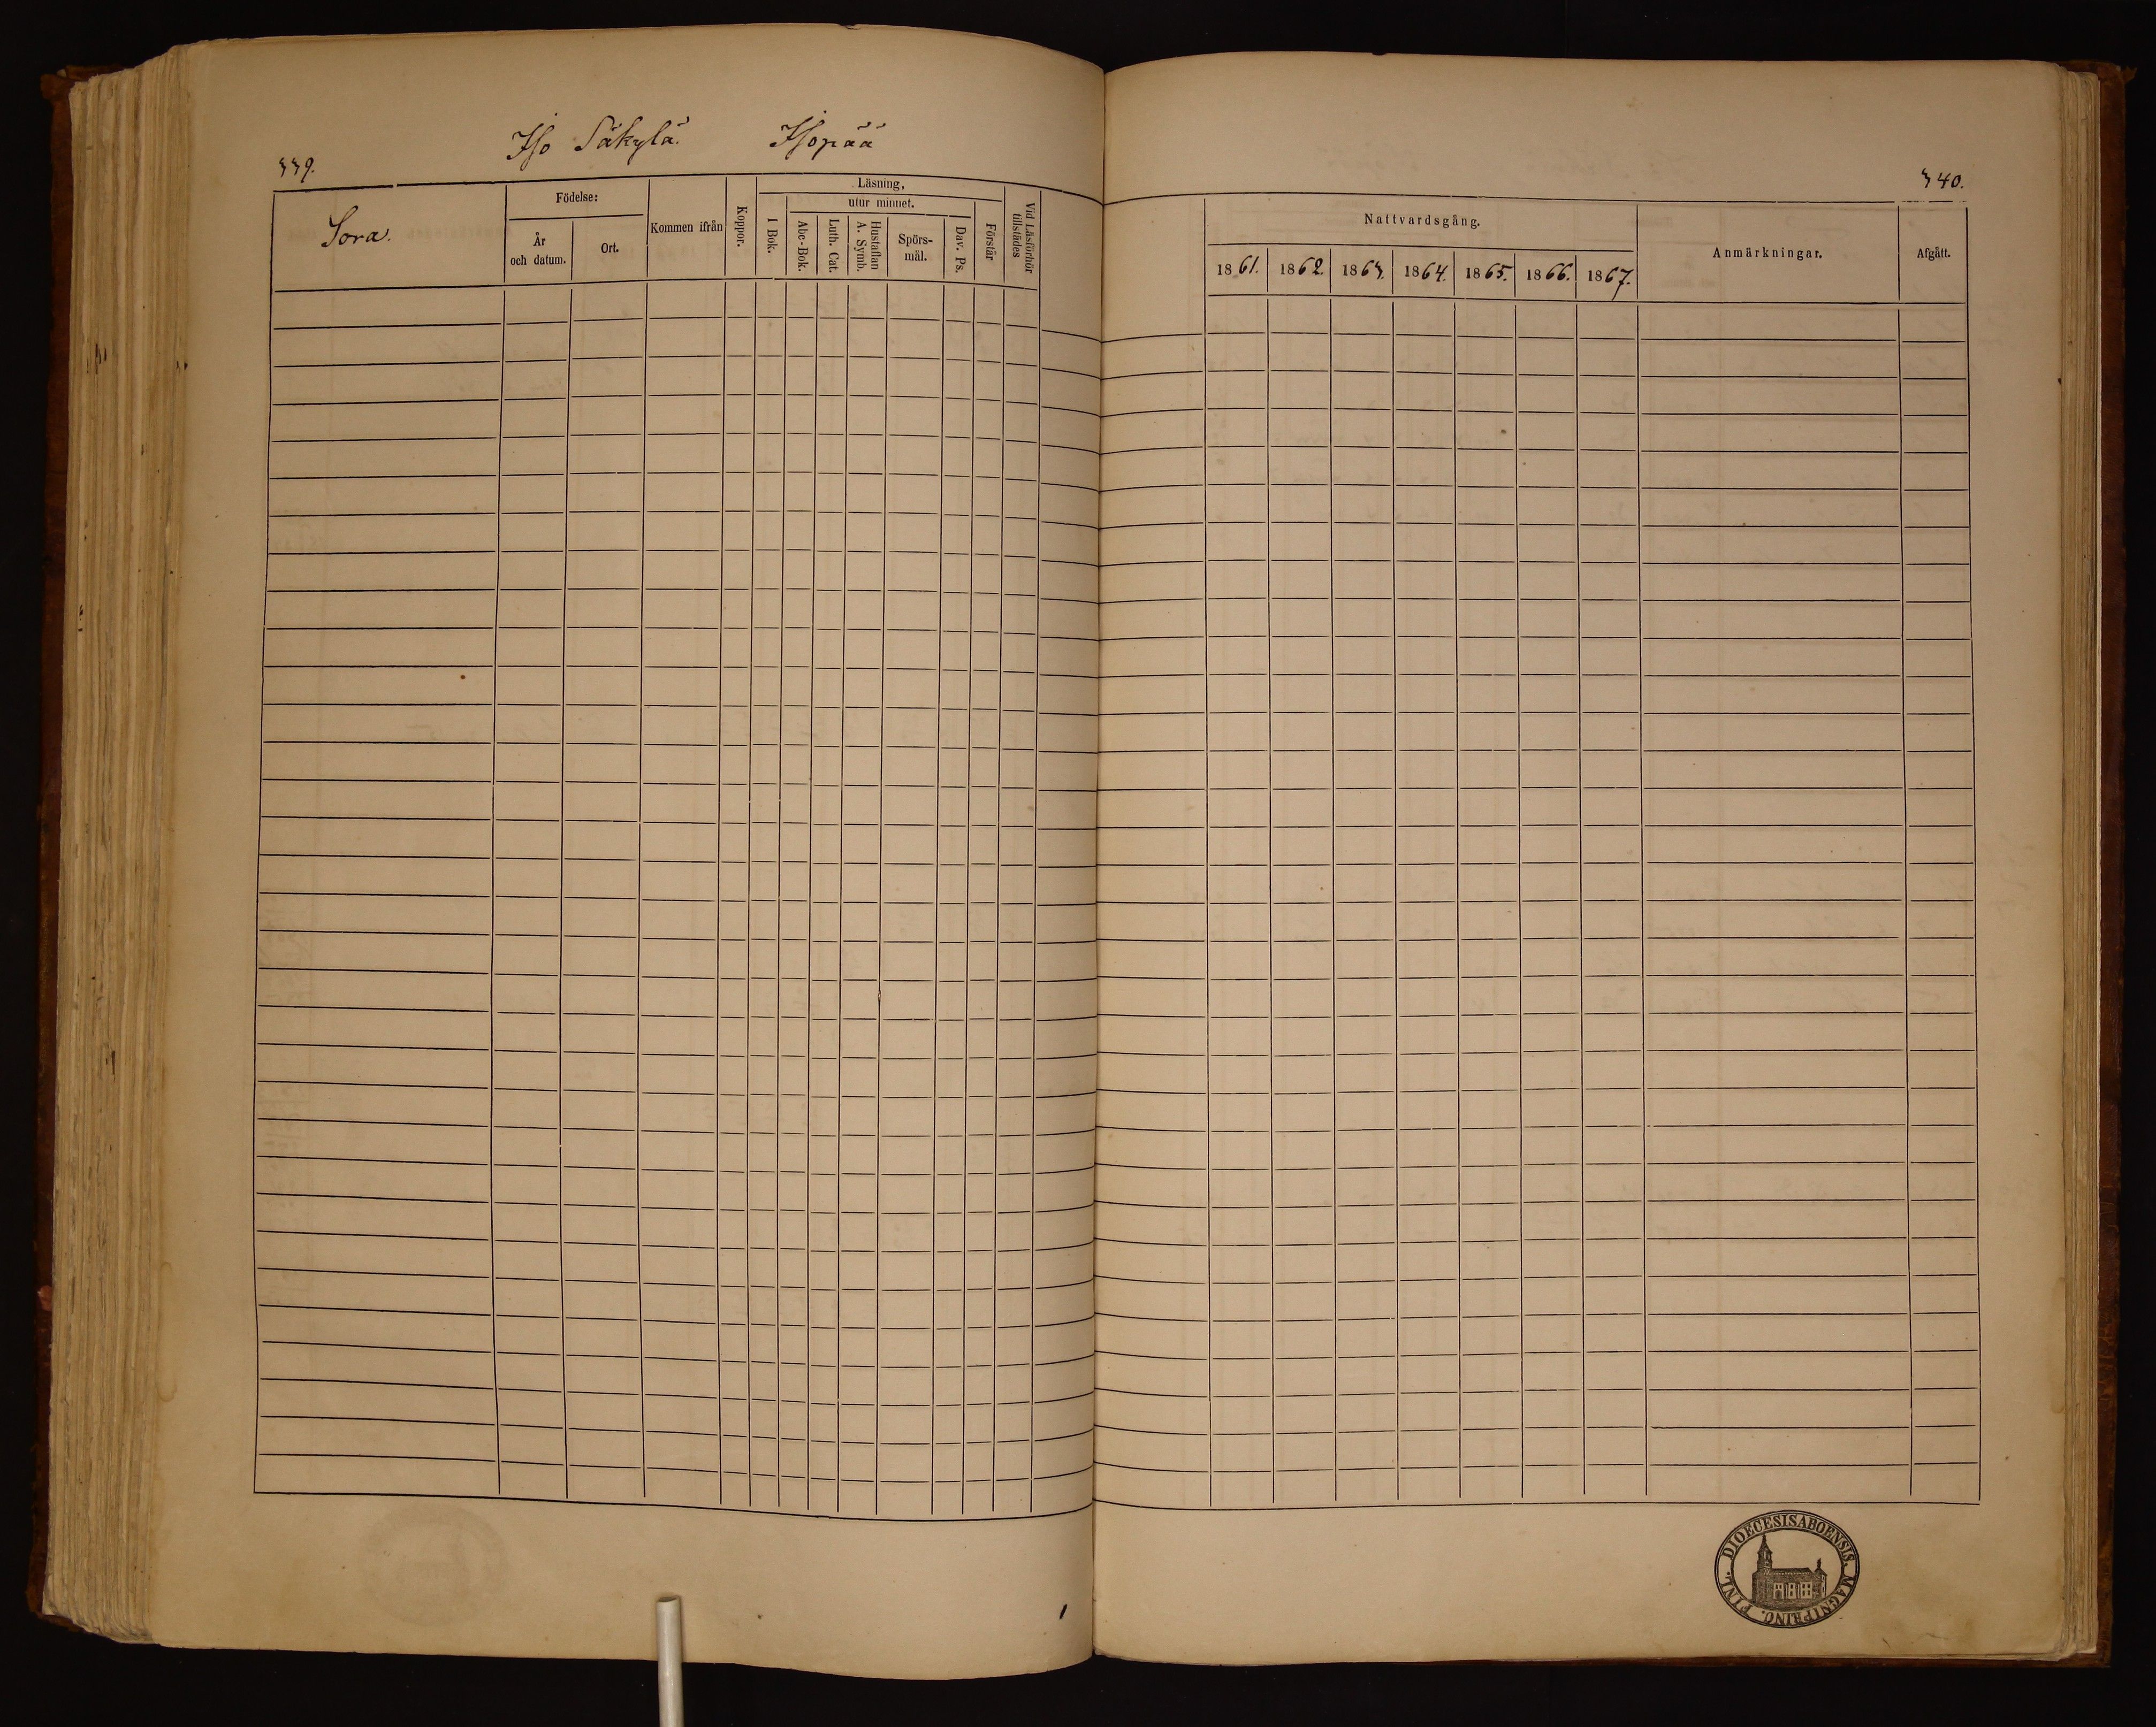 Iso Säkylä. Isopää
339.
Sora.
Födelse:
År
och datum.
Ort.
Kommen ifrån
Koppor.
Läsning,
utur minnet.
I Bok.
Abc-Bok.
Luth. Cat.
Hustaflan
A. Symb.
Spörs-
mål.
Dav. Ps.
Förstår
Vid Läsförhör
tillstädes
340.
Nattvardsgång.
1861. 1862. 1863. 1864. 1865. 1866. 1867.
Anmärkningar.
Afgått.
DIOECESIS ABOENSIS. MAGNI PRINC. FINL.